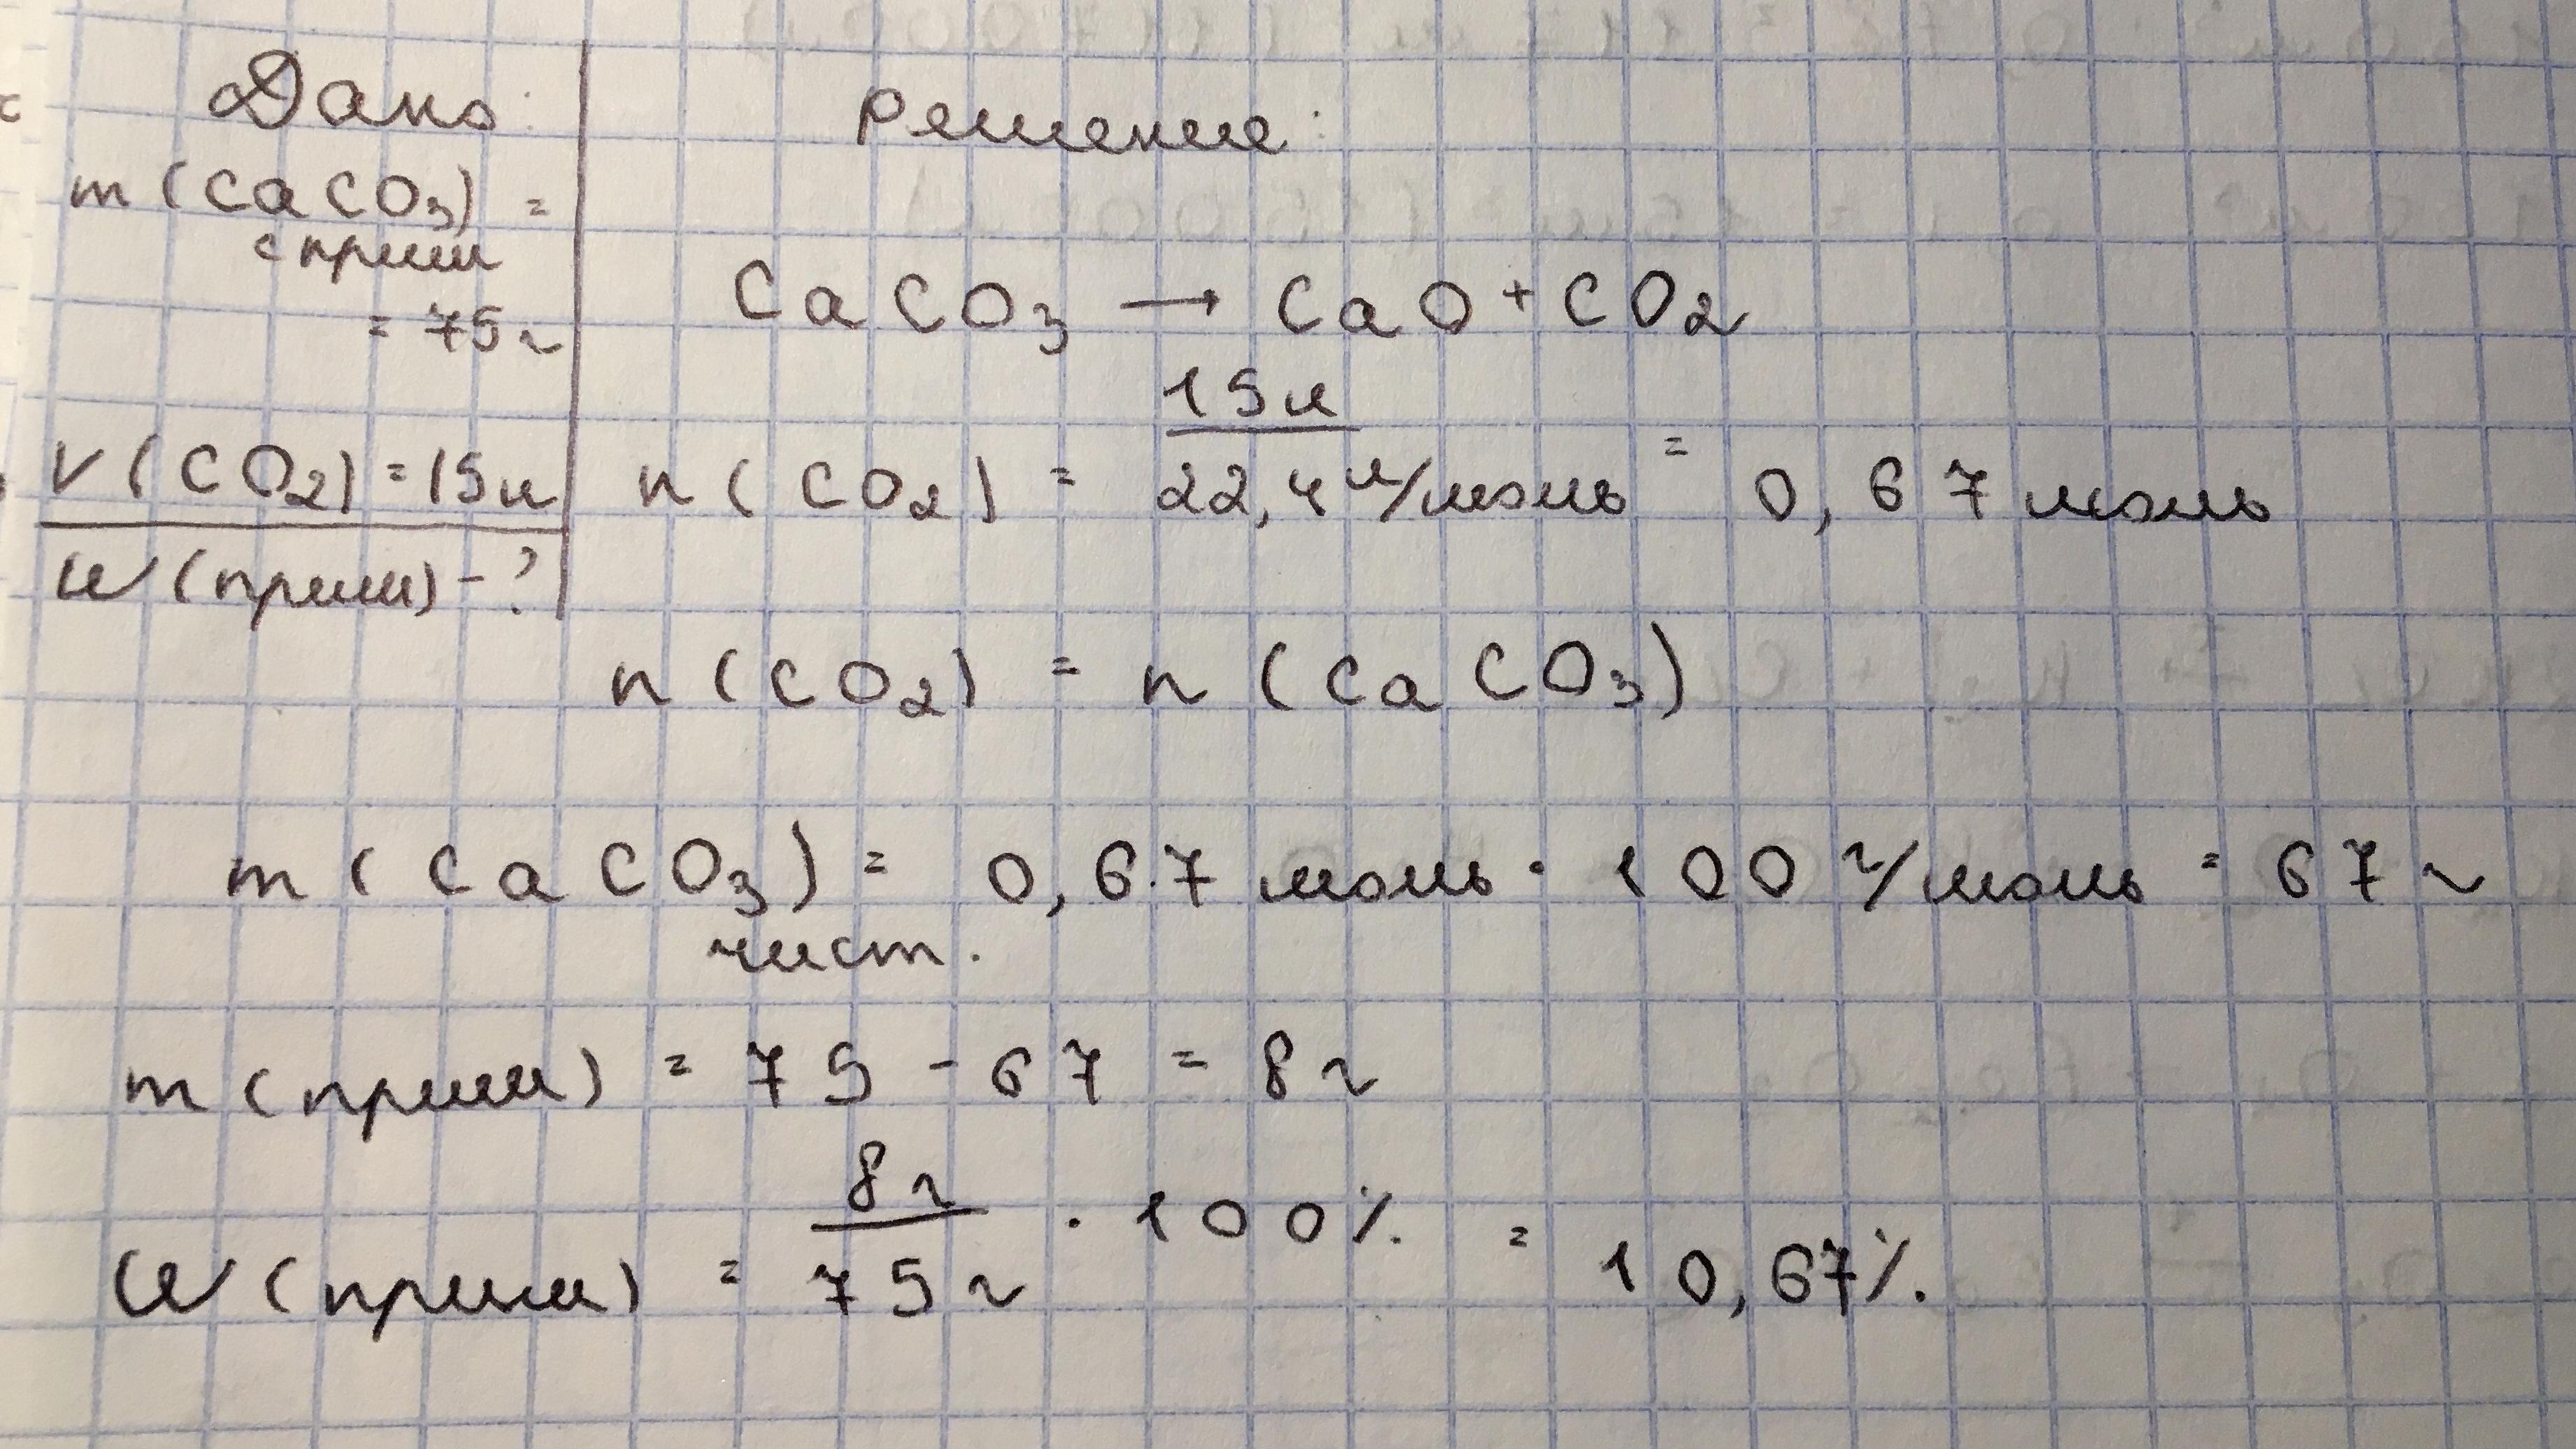 Дано:
m(CaCO₃) =
с прим
= 75г
V(CO₂) = 15л
W(прим) - ?
Решение:
CaCO₃ → CaO + CO₂
n(CO₂) = 15л / 22,4 л/моль = 0,67 моль
n(CO₂) = n(CaCO₃)
m(CaCO₃) = 0,67 моль · 100 г/моль = 67г
чист.
m(прим) = 75 - 67 = 8г
W(прим) = 8г / 75г · 100% = 10,67%